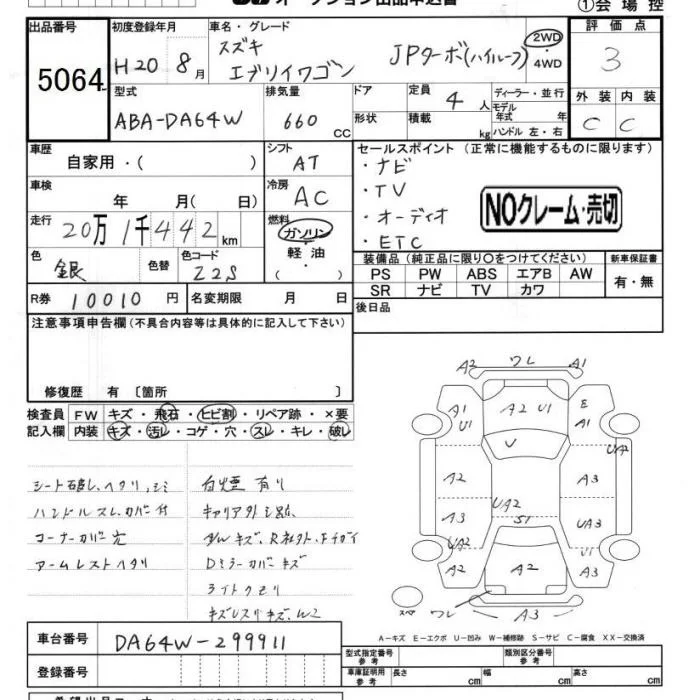 オークション出品申込書
①会場控
出品番号 5064
初度登録年月 H20 8月
車名・グレード スズキ エブリイワゴン JPターボ(ハイルーフ)
2WD・4WD
評価点 3
型式 ABA-DA64W
排気量 660 CC
ドア 形状
定員 4人
積載 kg
ディーラー・並行
モデル年式 年
ハンドル 左・右
外装 内装
C C
車歴 自家用・( )
シフト AT
セールスポイント (正常に機能するものに限ります)
・ナビ
・TV
・オーディオ
・ETC
NOクレーム・売切
車検 年 月( 日)
冷房 AC
走行 20万1千442km
燃料 ガソリン・軽油・( )
色 銀 色替 色コード Z2S
装備品 (純正品に限り○をつけてください)
新車保証書 有・無
PS PW ABS エアB AW
SR ナビ TV カワ
R券 10010円 名変期限 月 日
後日品
注意事項申告欄 (不具合内容等は具体的に記入して下さい)
修復歴 有 〔箇所 〕
検査員記入欄
FW キズ・飛石・ヒビ割・リペア跡・×要
内装 キズ・汚レ・コゲ・穴・スレ・キレ・破レ
シート破レ、ヘタリ、シミ
ハンドルスレ、カバー付
コーナーカバー欠
アームレストヘタリ
白煙有り
キャリア外シ跡
Dミラーカバーキズ
ライトクモリ
A2 ワレ A1
A1 U1 A2 U1 E A1
V UA2
A2 A3
A3 UA2 S1 UA3
UA2 U1
A2 A2 A3
スペ ワレ A3
A-キズ E-エクボ U-凹み W-補修跡 S-サビ C-腐食 XX-交換済
車台番号 DA64W-299911
登録番号
型式指定番号 参考
類別区分番号 参考
車庫証明用 参考 長さ cm 幅 cm 高さ cm